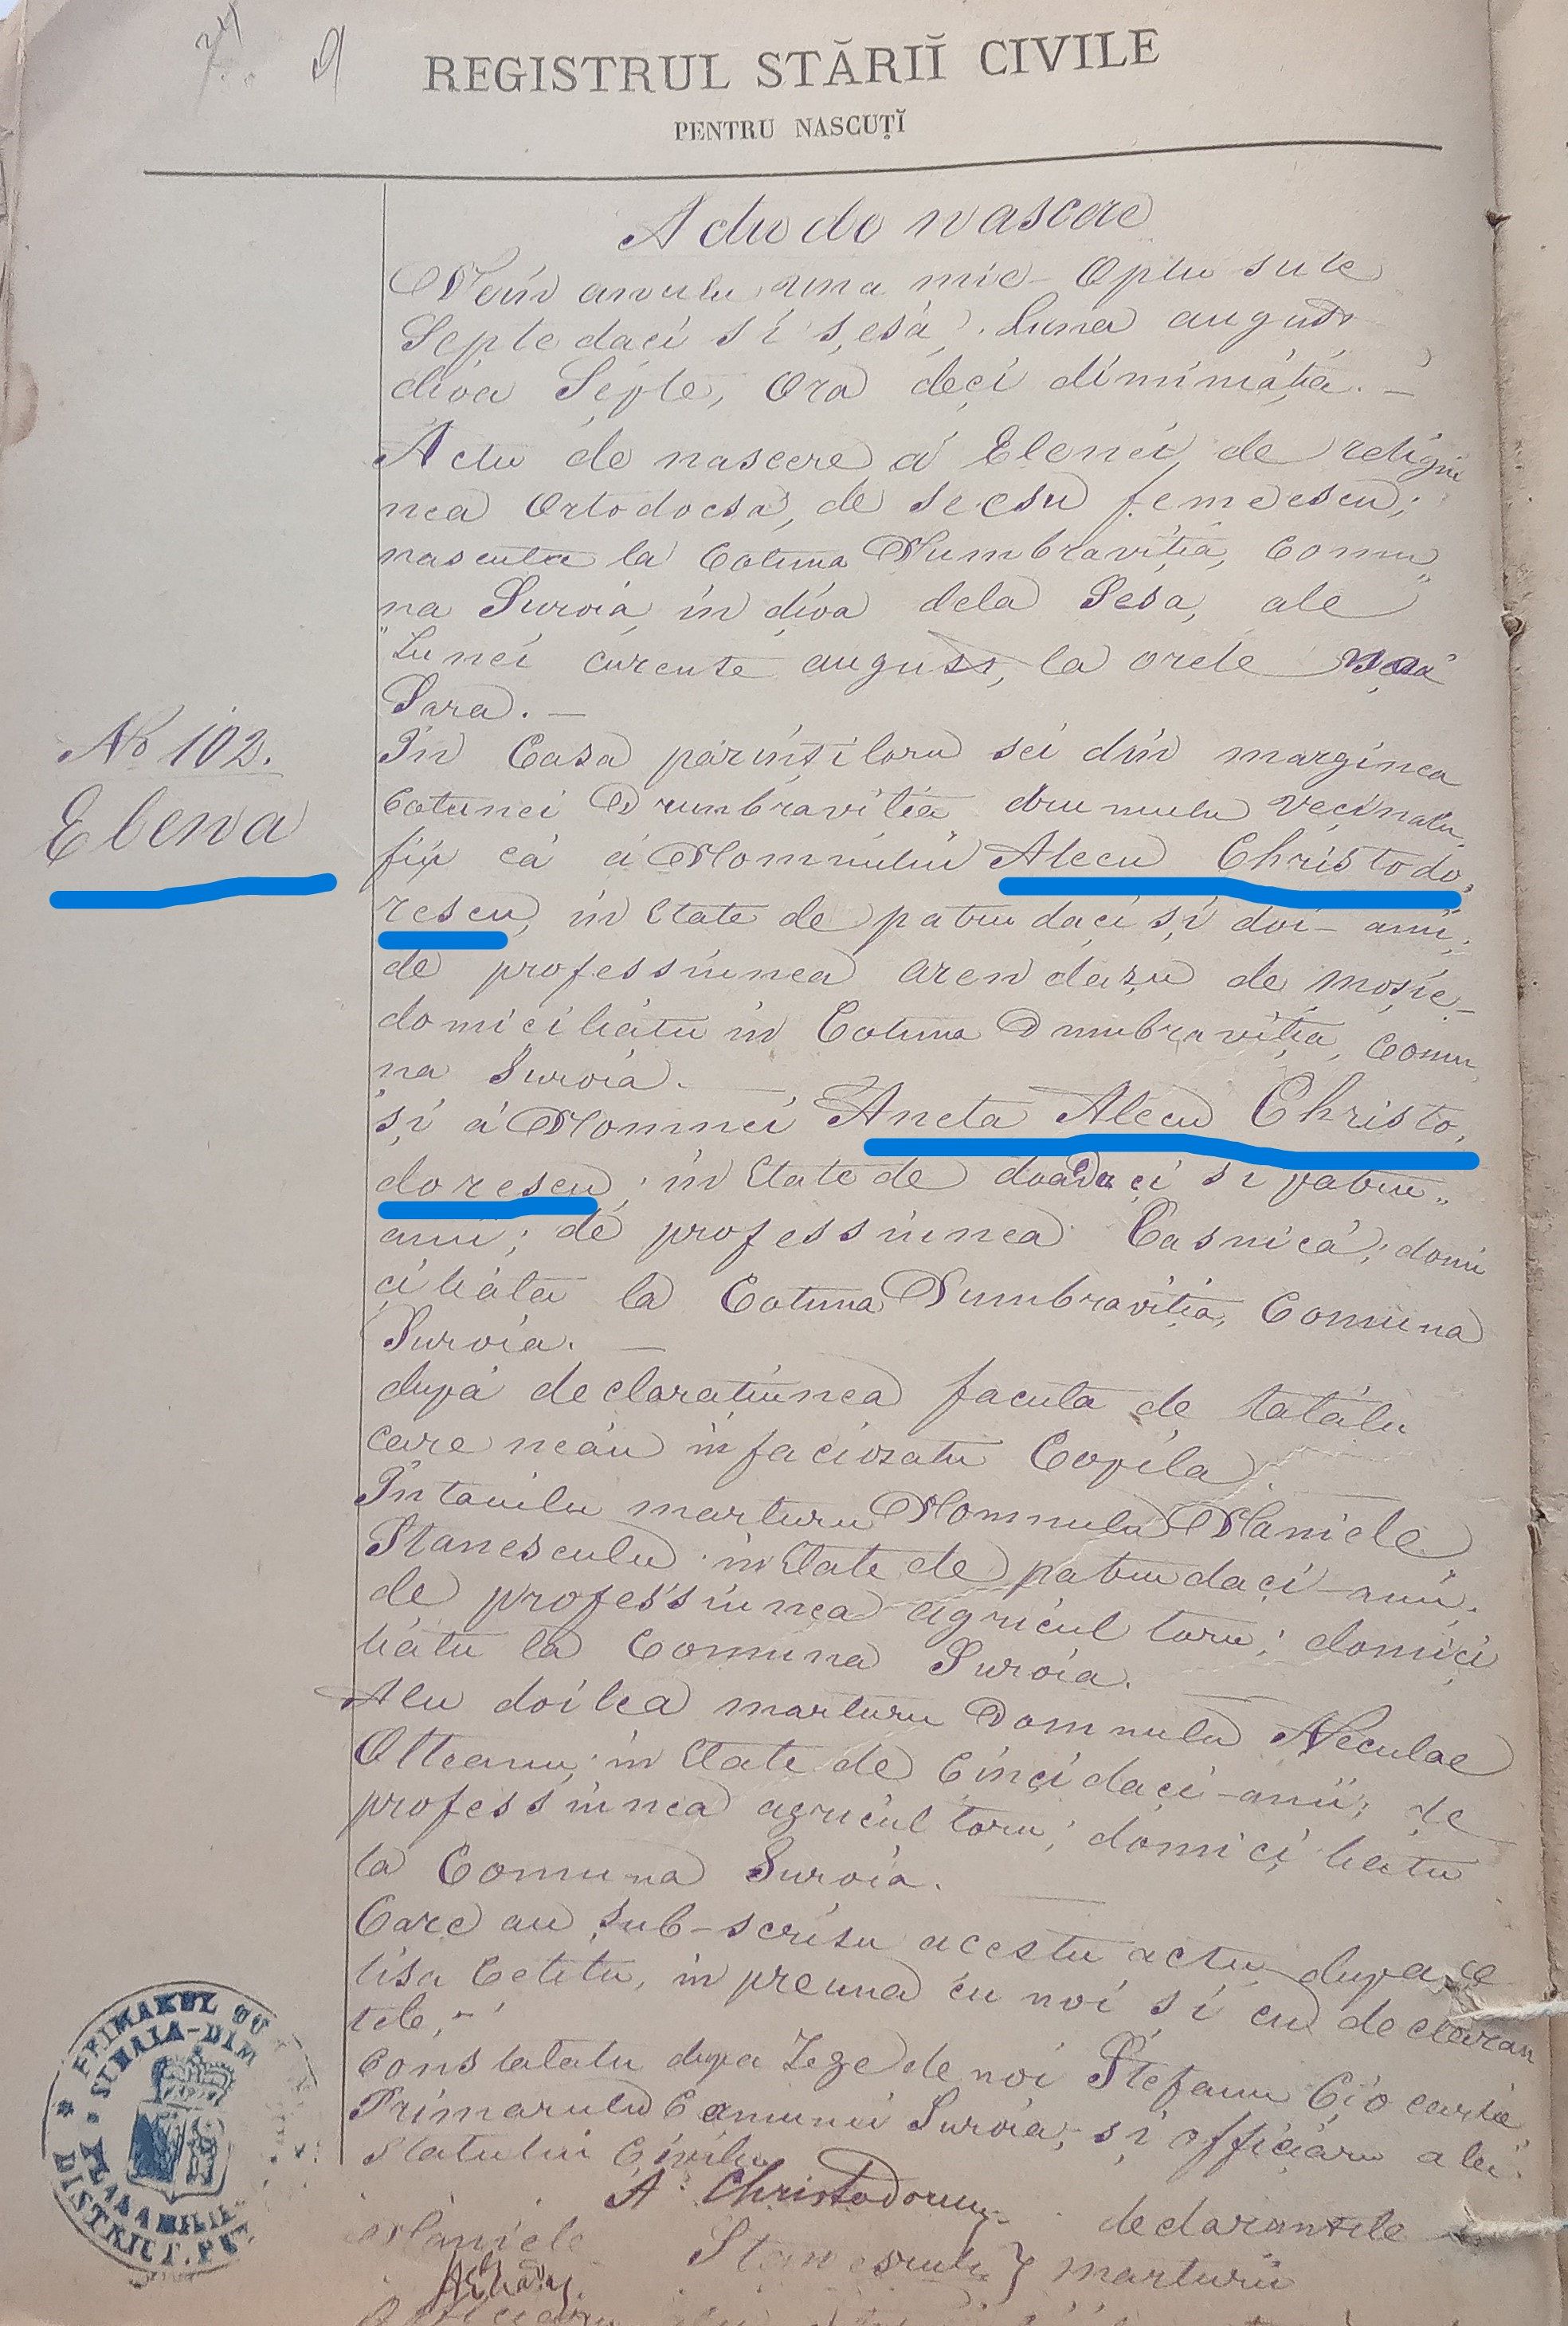 REGISTRUL STĂRIĬ CIVILE
PENTRU NASCUȚĬ
Actu de nascere
Din anulu una mie Optu sute
Septe daci si șesă, Luna august
dioa Septe, Ora deci diminiața. —
Actu de nascere a Elenei, de religiu
nea Ortodocsa, de secsu femeescu;
nascuta la Cotuna Dumbravița, Comu
na Suroia in dioa dela Sesa, ale
Lunei curente august, la orele
Sara. —
No 102.
Elena
In Casa părinților sei din marginea
Cotunei Drumbravitia drumulu vecinalu,
fiie că a Domnului Alecu Christodo,
rescu, in Etate de patru daci și doi anii;
de professiunea arendașu de moșie
domiciliatu in Cotuna Dumbravița, Comu,
na Suroia. —
și a Domnei Aneta Alecu Christo,
dorescu; in Etate de doădaci si patru
anii; de professiunea Casnică; domi
ciliăta la Cotuna Dumbravița, Comuna
Suroia. —
după declarațiunea facuta de tatălu
care neau infaciosatu Copila.
Intăiulu marturu Domnulu Daniele
Stanesculu in Etate de patru daci anii;
de professiunea agricultoru; domici
liatu la Comuna Suroia.
Alu doilea marturu Domnulu Neculae
Olteanu; in Etate de Cinci daci anii; de
professiunea agricultoru; domiciliatu
la Comuna Suroia.
Care au sub-scrisu acestu actu dupa ce
lisa Cetitu, inpreuna cu noi si cu declaran
tele,-
Constatatu dupa Lege de noi Stefanu Ciocarlie
Primarulu Comunei Suroia, și officiaru alu
Statului Civilu
A Christodorescu declarantele
Daniele Stanesculu } marturii